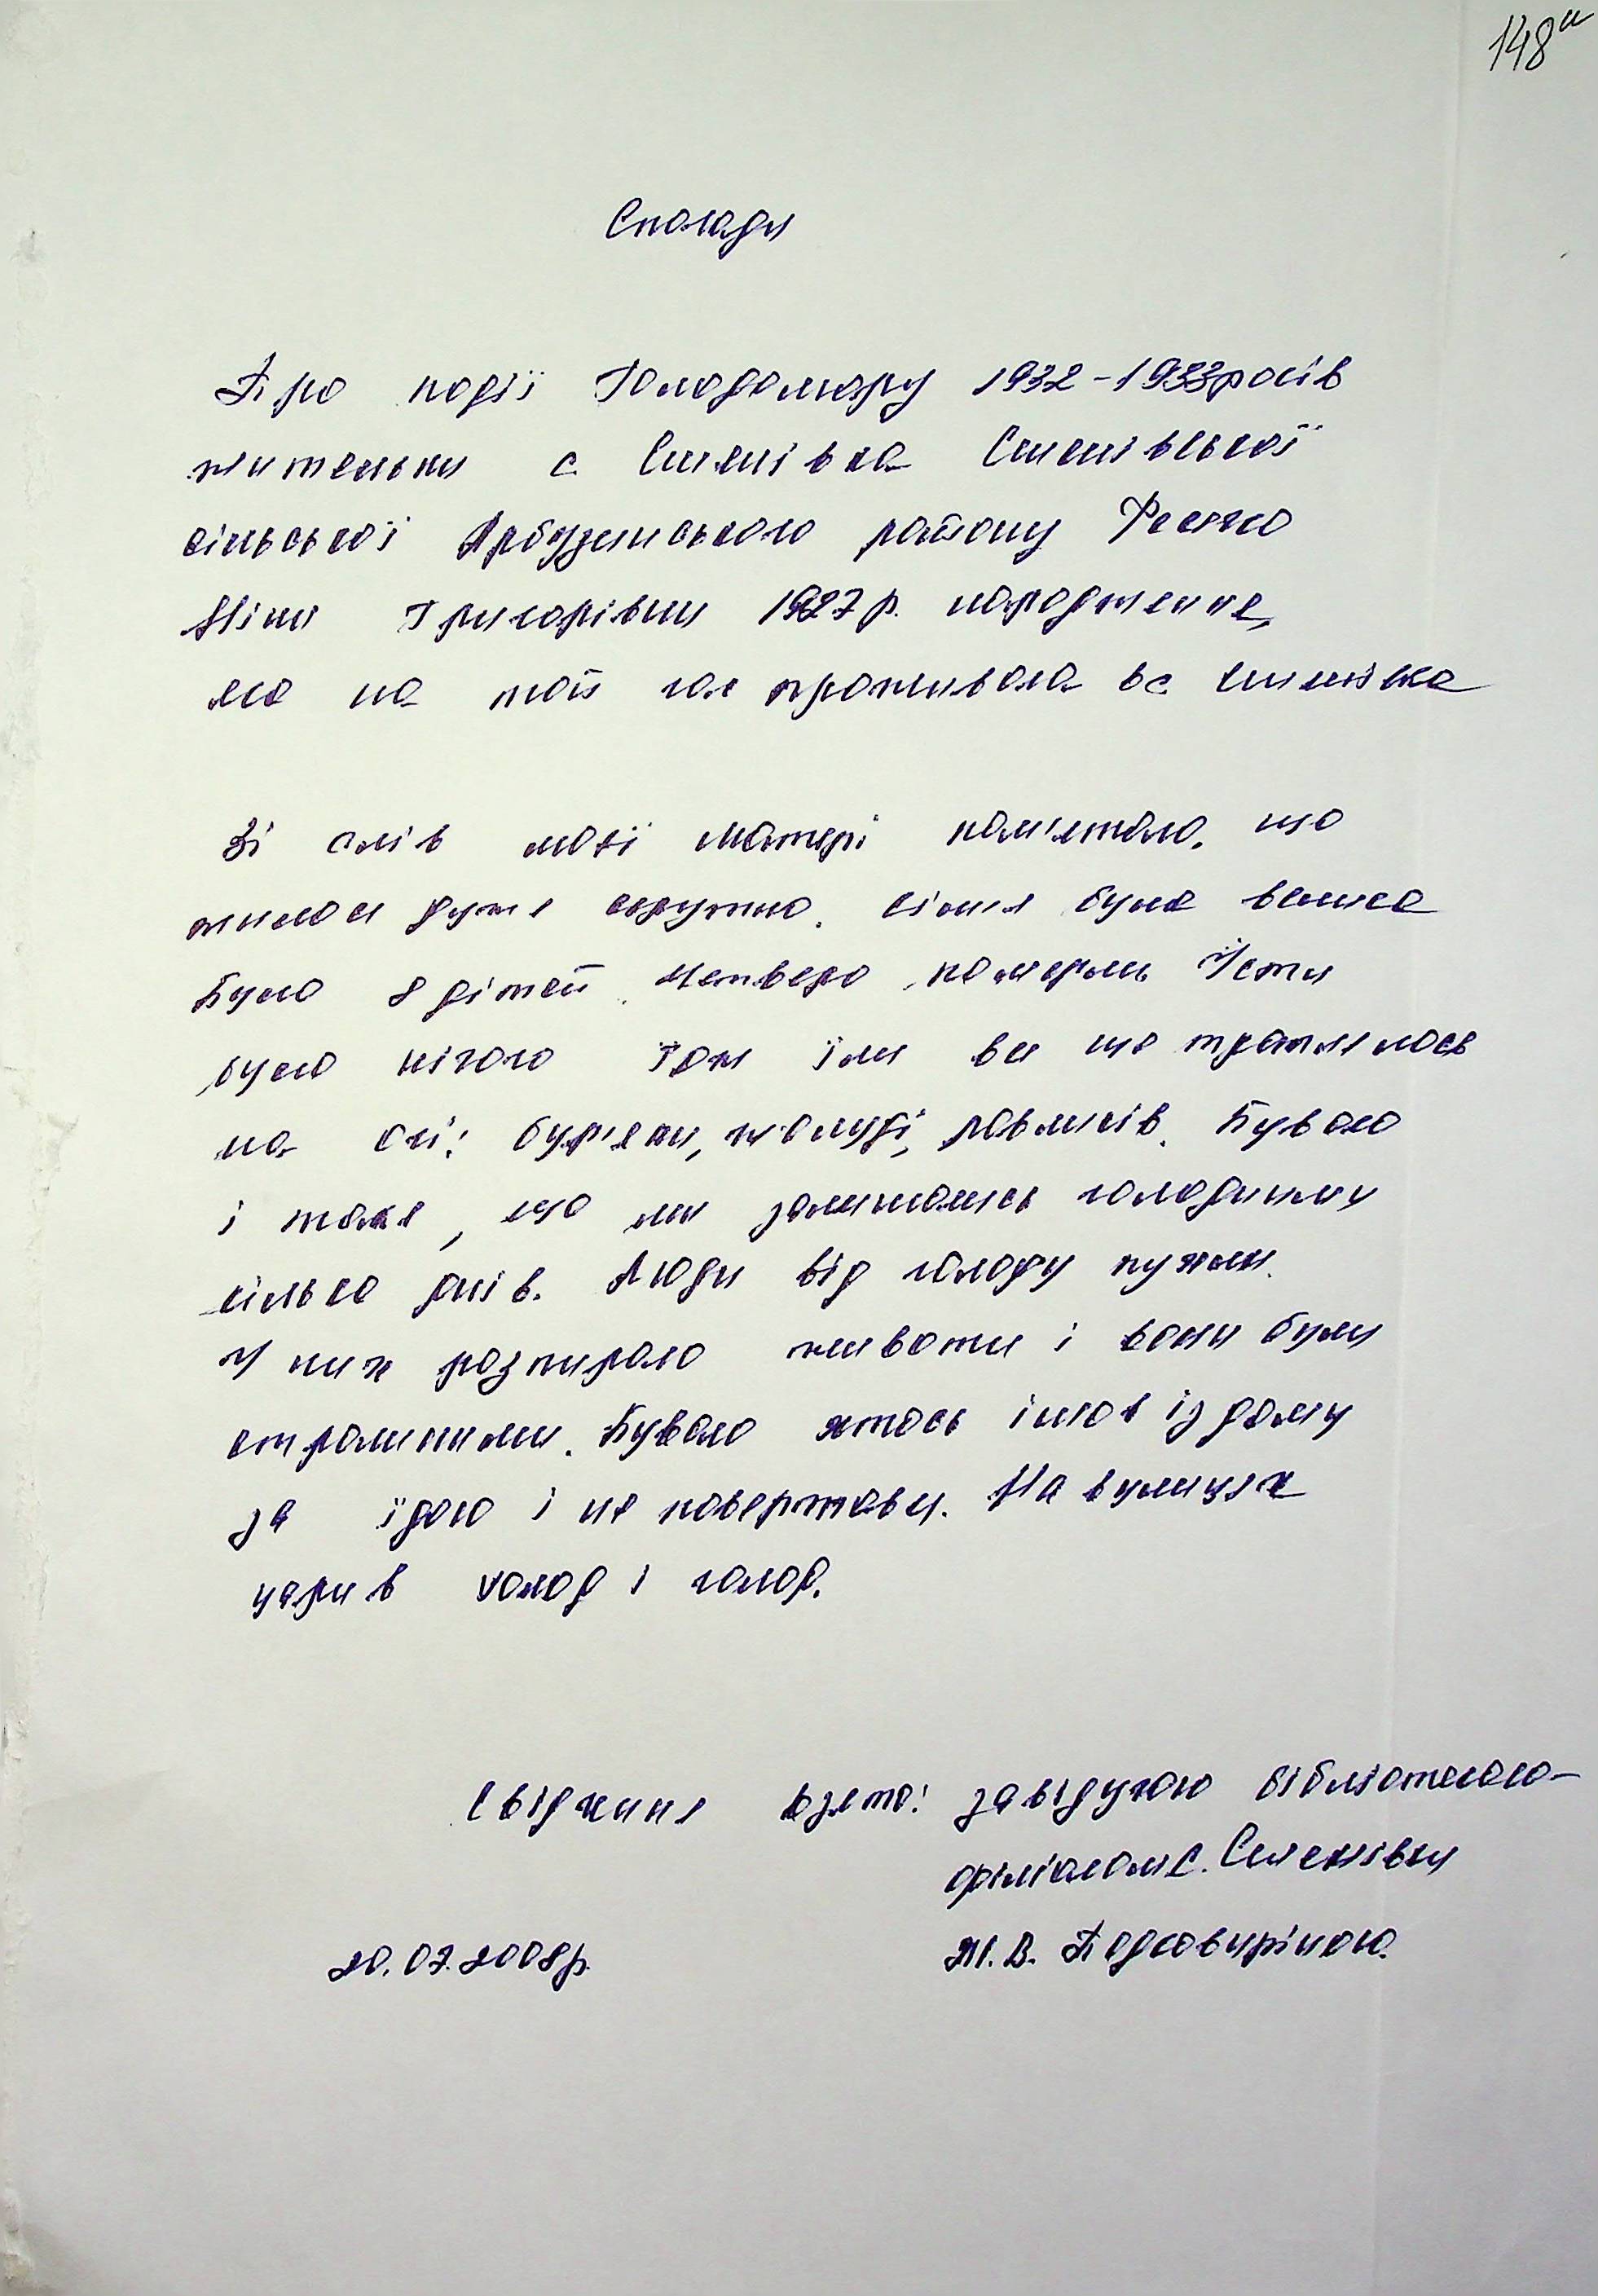 148а
Спогади
Про події Голодомору 1932-1933 росів
жительки с Синенівка Синенівської
сільської Арбузинського району
Ніни Григорівни 1927 р. народження,
яка на той час проживала в с
Зі слів моєї матері пам'ятаю, що
жилося дуже скрутно. сімя була велика
Було 8 дітей. Четверо померли Їсти
було нічого Тож їли все що траплялось
на очі: бур'яни, жолуді, равликів. Бувало
і таке, що ми залишались голодними
кілька днів. Люди від голоду пухли.
У них розпирало животи і вони були
страшними. Бувало хтось ішов із дому
за їдою і не повертався. На вулицях
царив холод і голод.
Свідчення взято: завідуючою бібліотекою-
філіалом с. Синенівки
20.07.2008р.